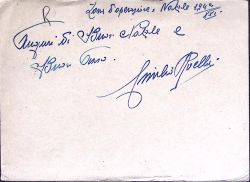 Zona d'operazione, Natale 1942
XXI.
Auguri di Buon Natale e
Buon Anno.
Emilio